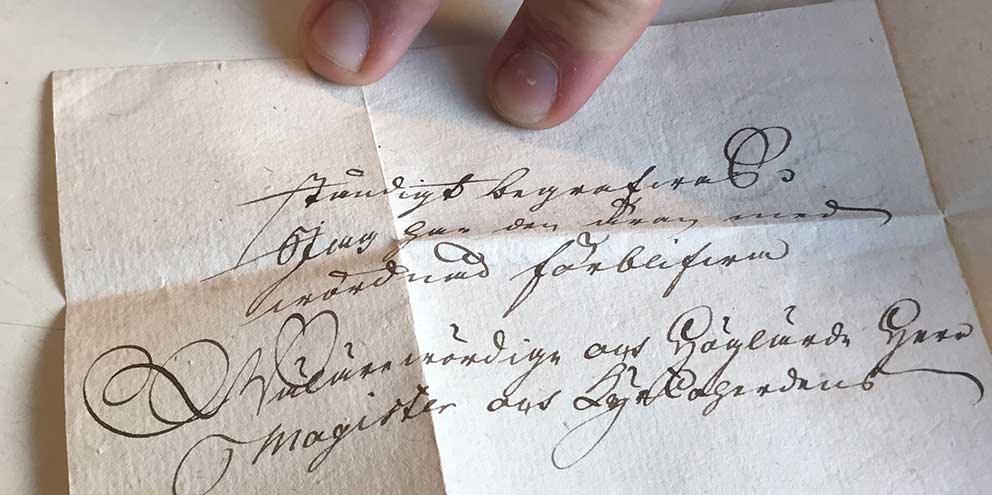 ständigt begrafwas
Jag har den äran med
wördnad förblifwa
Wälärewördige och Höglärde Herr
Magister och Kyrkoherdens